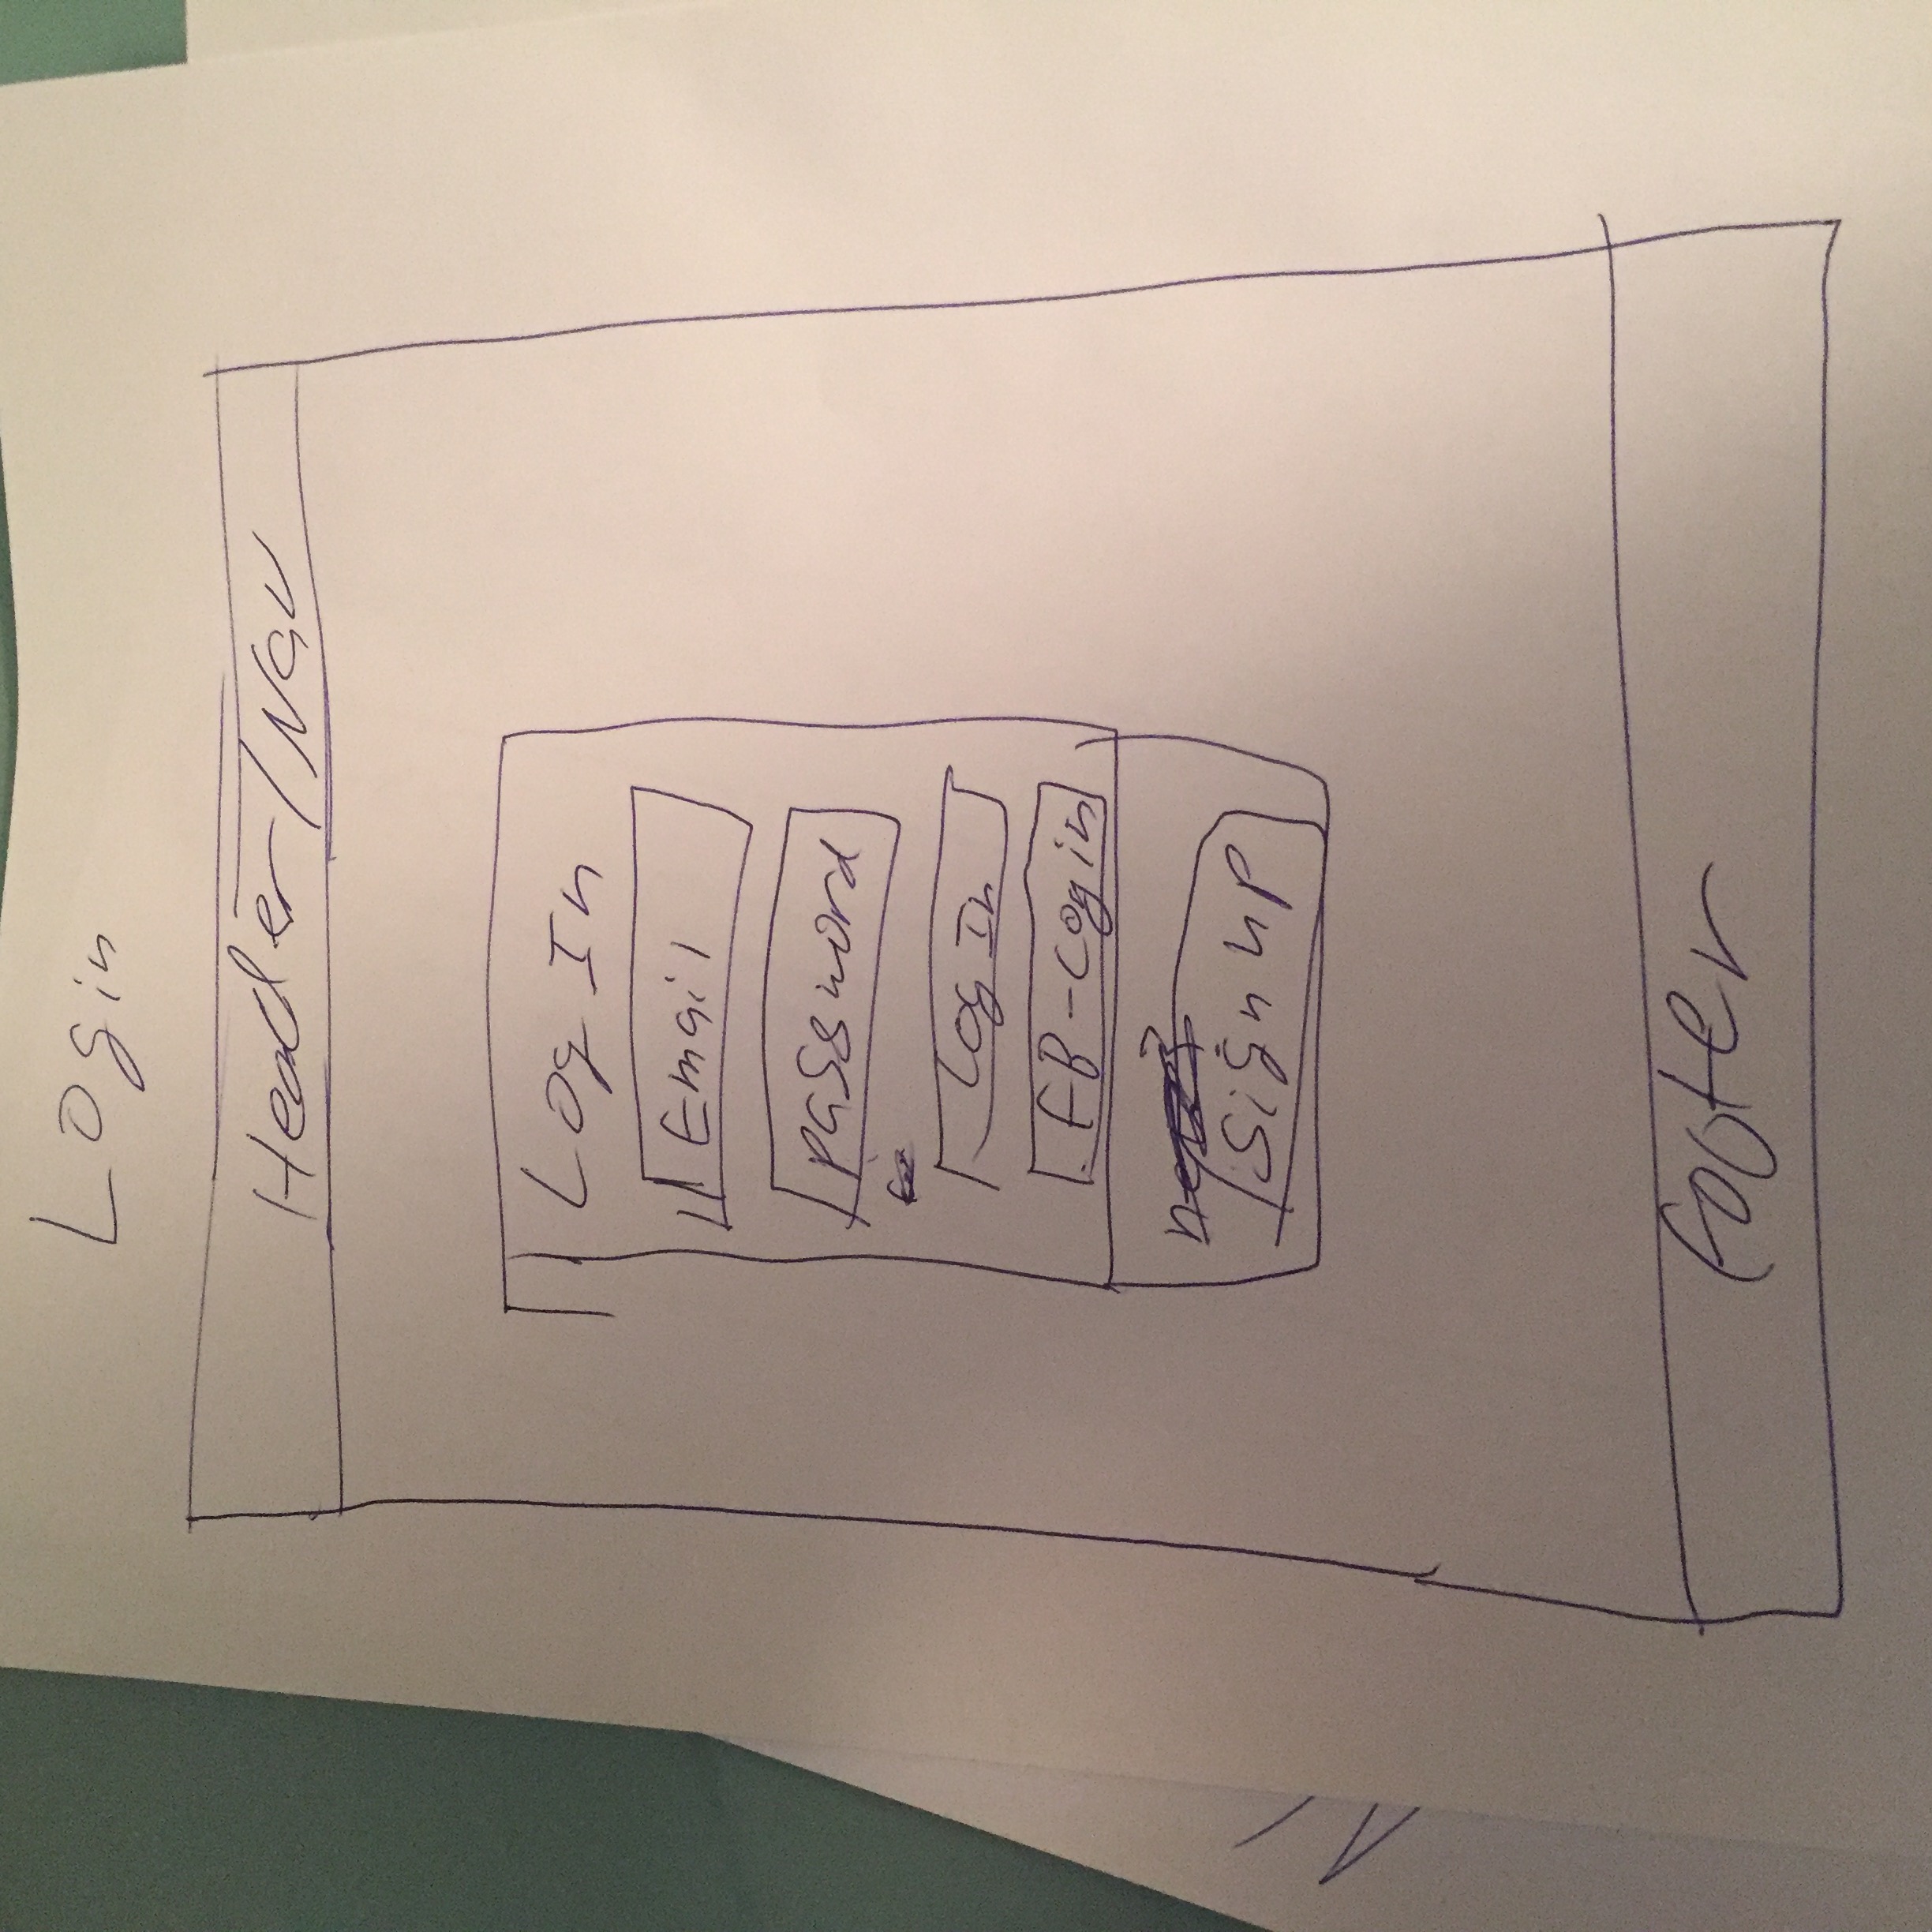 Login
Header/Nav
Log In
Email
password
Log In
FB-Login
Sign up
footer